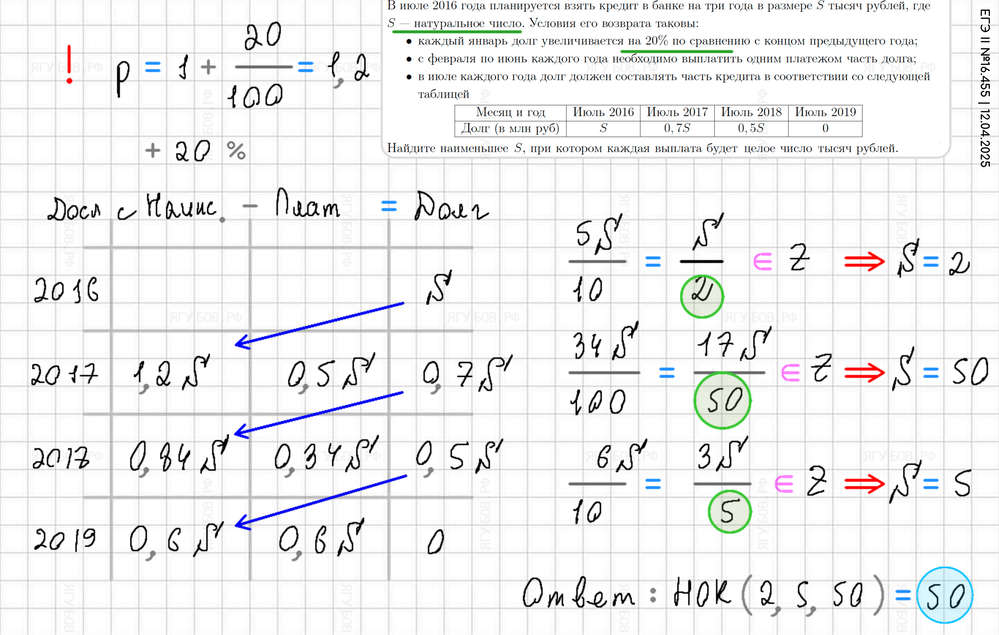 В июле 2016 года планируется взять кредит в банке на три года в размере S тысяч рублей, где
S — натуральное число. Условия его возврата таковы:
• каждый январь долг увеличивается на 20% по сравнению с концом предыдущего года;
• с февраля по июнь каждого года необходимо выплатить одним платежом часть долга;
• в июле каждого года долг должен составлять часть кредита в соответствии со следующей
таблицей
Месяц и год Июль 2016 Июль 2017 Июль 2018 Июль 2019
Долг (в млн руб) S 0,7S 0,5S 0
Найдите наименьшее S, при котором каждая выплата будет целое число тысяч рублей.
ЕГЭ II №16.455 | 12.04.2025
! p = 1 + 20/100 = 1,2
+ 20 %
Досл с Начис. - Плат = Долг
2016 S
2017 1,2 S 0,5 S 0,7 S
2018 0,84 S 0,34 S 0,5 S
2019 0,6 S 0,6 S 0
5S/10 = S/2 ∈ Z ⇒ S = 2
34 S/100 = 17 S/50 ∈ Z ⇒ S = 50
6S/10 = 3S/5 ∈ Z ⇒ S = 5
Ответ : НОК ( 2, 5, 50 ) = 50